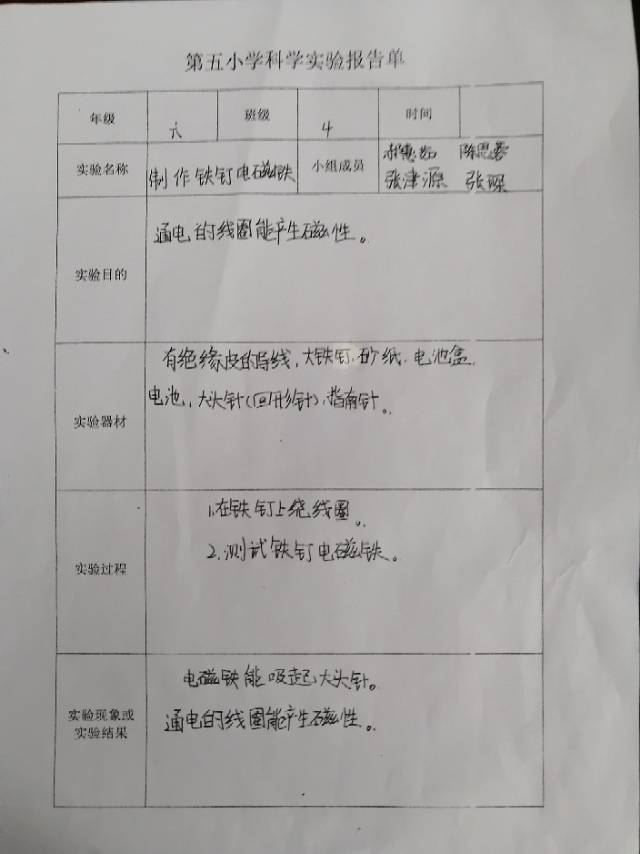 第五小学科学实验报告单
年级 六 班级 4 时间
实验名称 制作铁钉电磁铁 小组成员 陈思蓉
张津源 张琛
实验目的 通电的线圈能产生磁性。
实验器材 有绝缘皮的导线，大铁钉.砂纸.电池盒.
电池，大头针(回形针)，指南针。
实验过程 1.在铁钉上绕线圈。
2.测试铁钉电磁铁。
实验现象或
实验结果
电磁铁能吸起大头针。
通电的线圈能产生磁性。